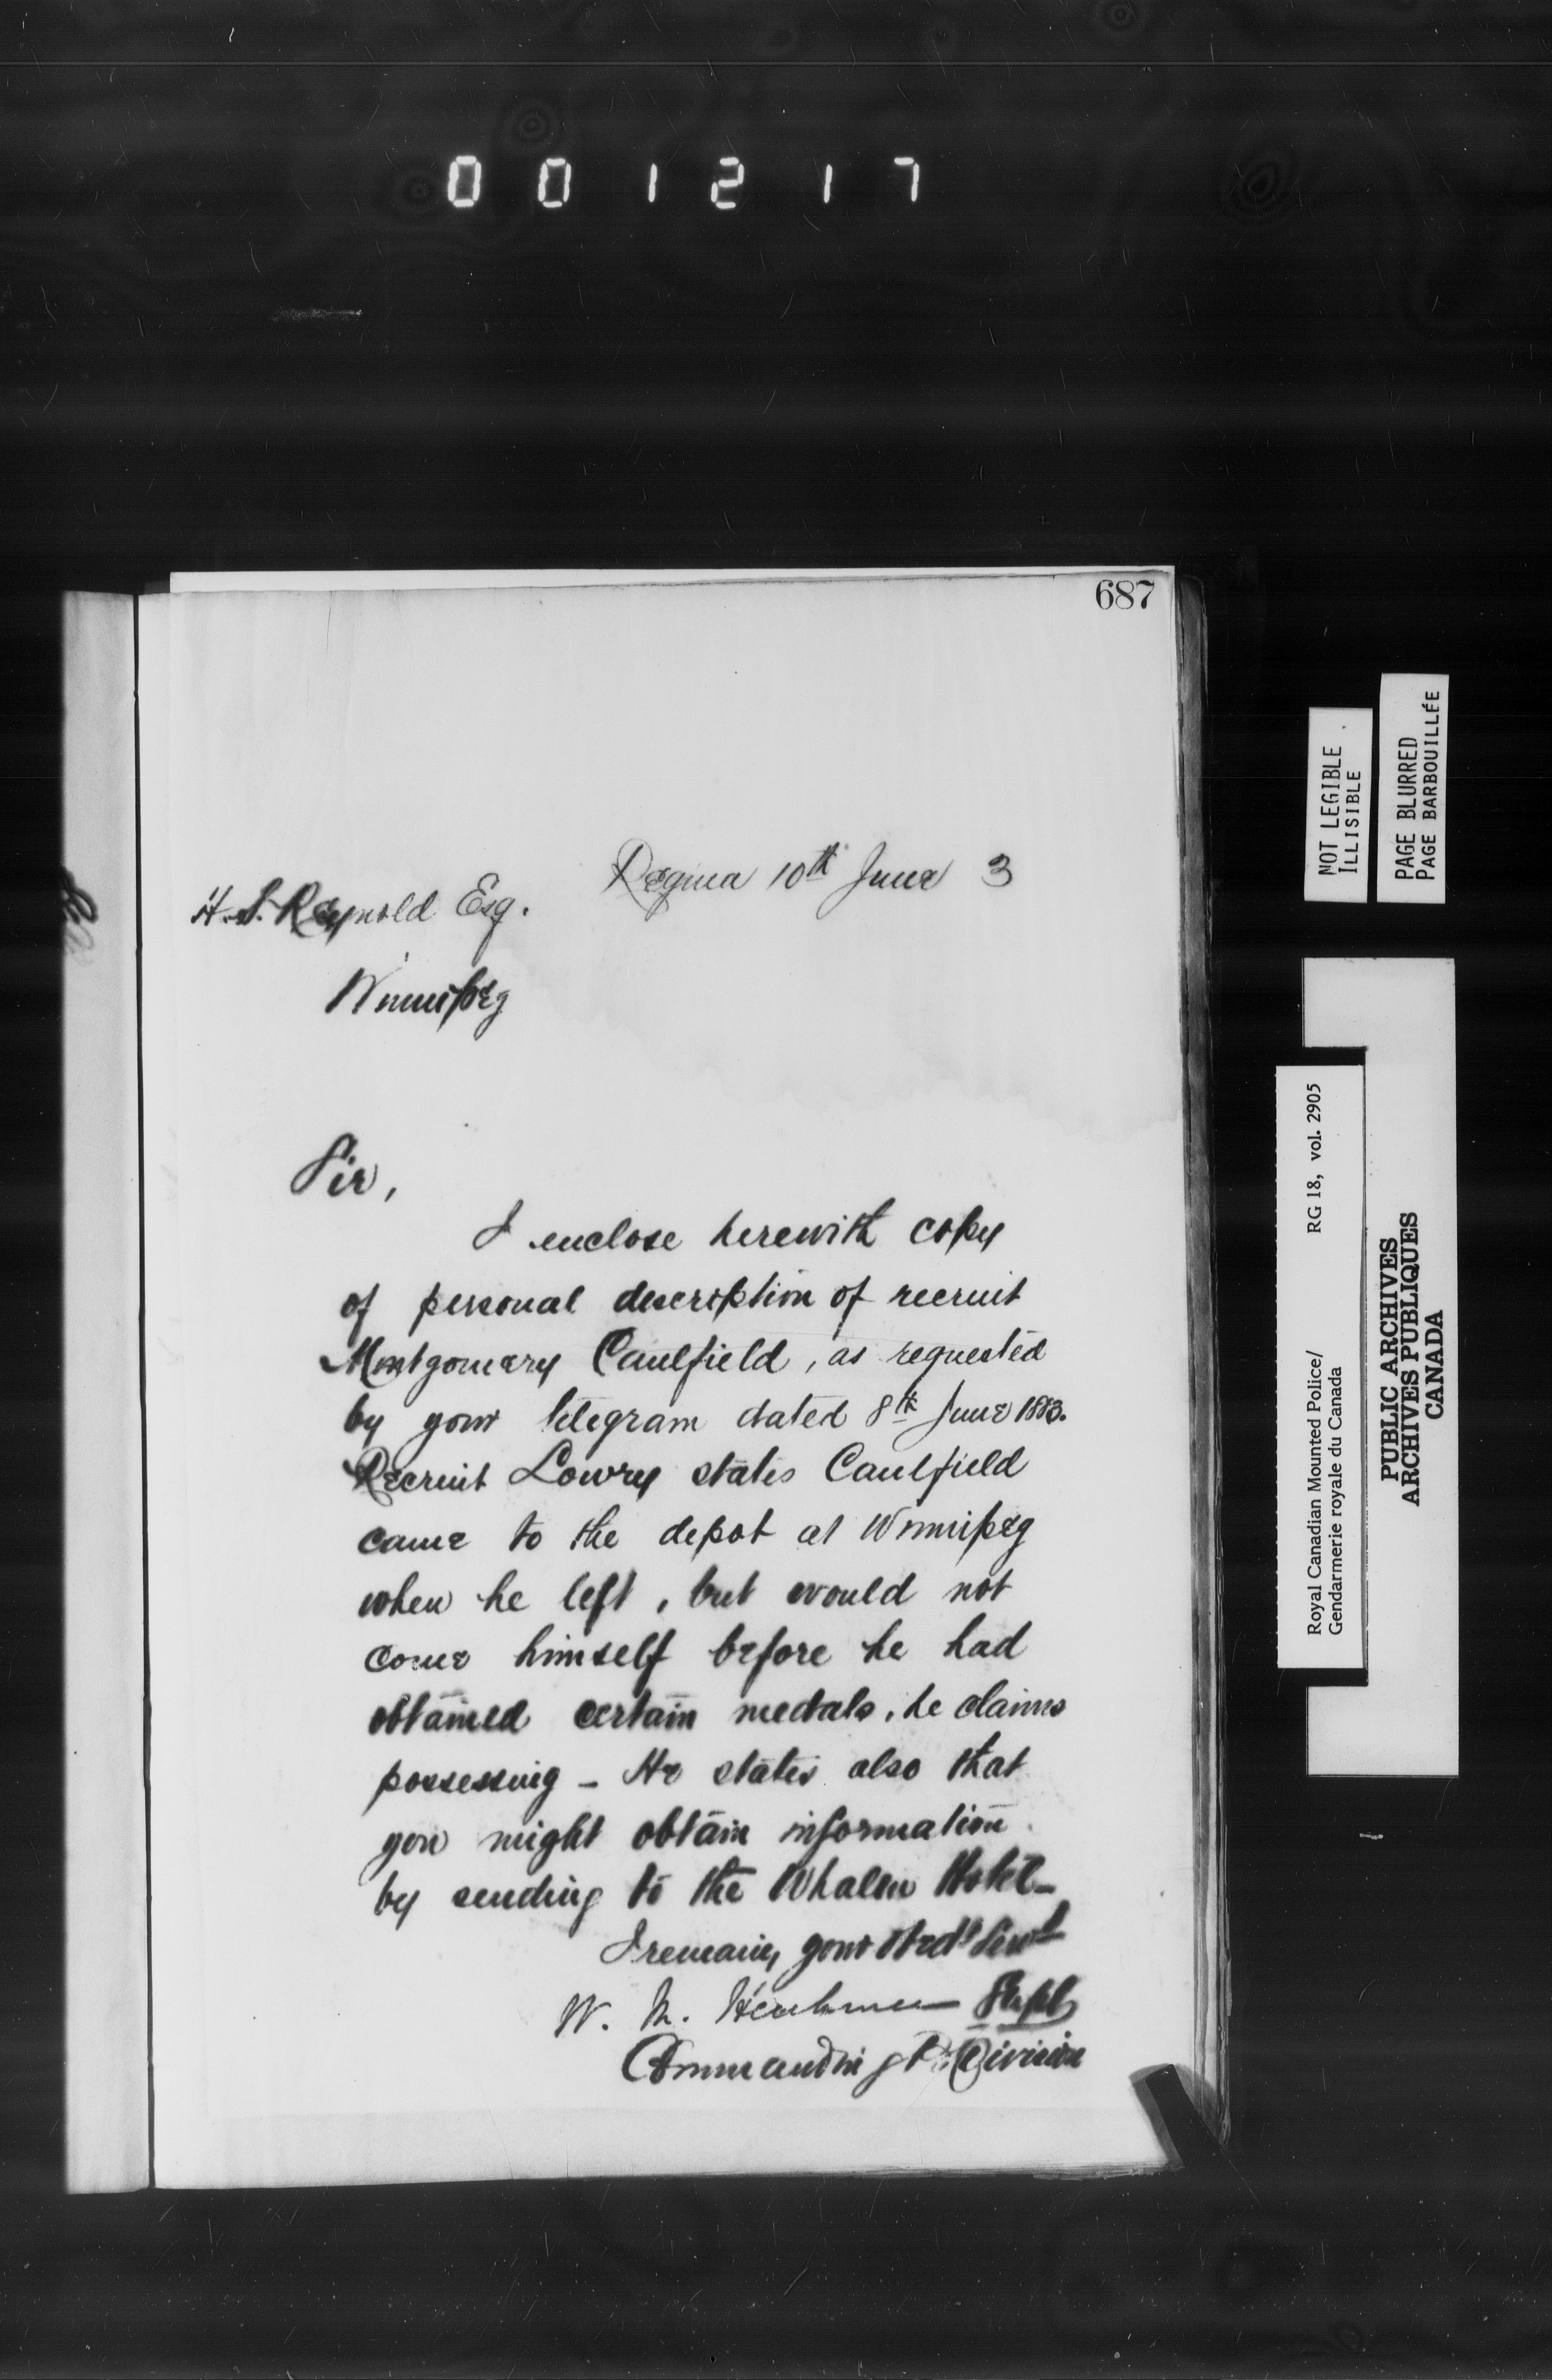 0 0 1 2 1 7
687
Regina 10th June 3
H. S. Reynold Esq.
Winnipeg
Sir,
I enclose herewith copy
of personal description of recruit
Montgomery Caulfield, as requested
by your telegram dated 8th June 1883.
Recruit Lowry states Caulfield
came to the depot at Winnipeg
when he left, but would not
come himself before he had
obtained certain medals, he claims
possessing - He states also that
you might obtain information
by sending to the Whalen Hotel -
I remain, your Obdt Servt
W. M. Supt
Commanding Division
NOT LEGIBLE
ILLISIBLE
PAGE BLURRED
PAGE BARBOUILLÉE
Royal Canadian Mounted Police/ RG 18, vol. 2905
Gendarmerie royale du Canada
PUBLIC ARCHIVES
ARCHIVES PUBLIQUES
CANADA